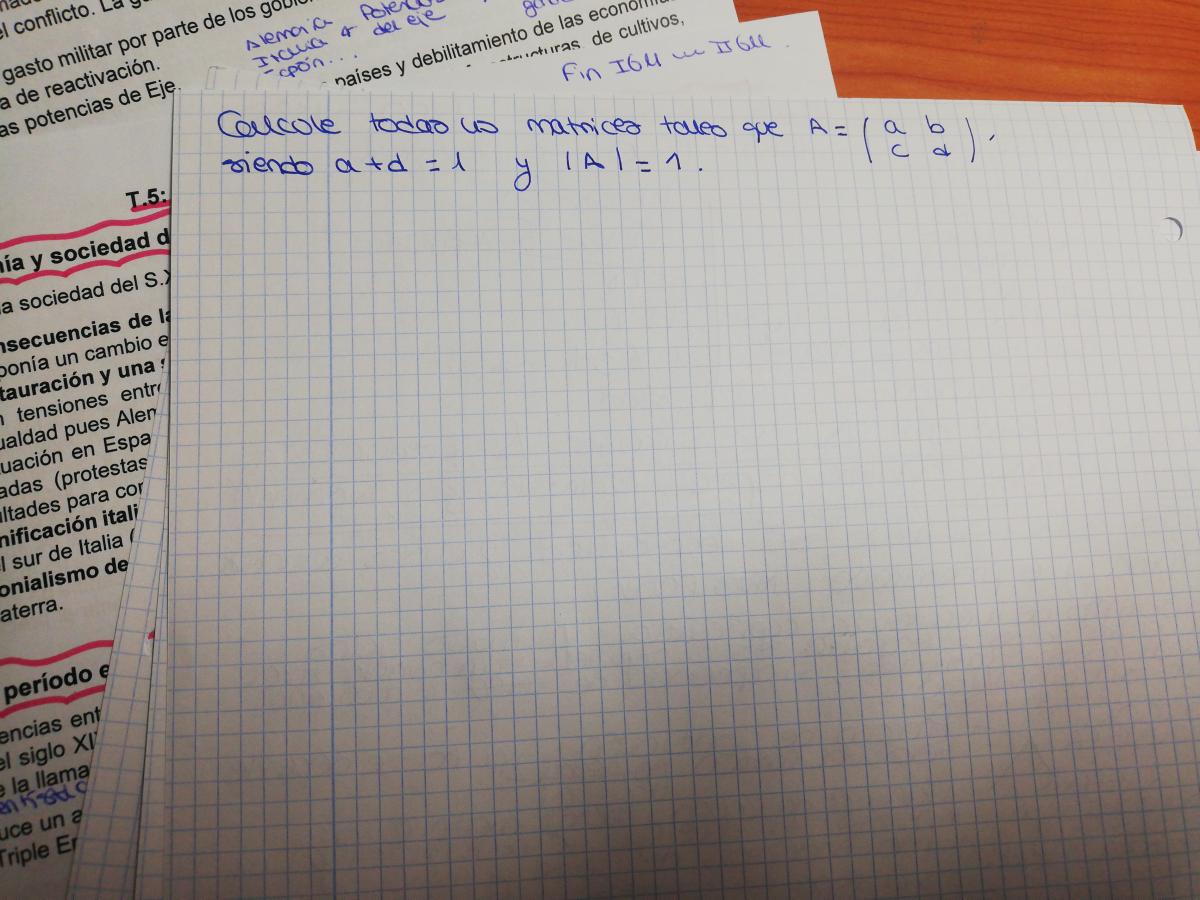 el conflicto. La
gasto militar por parte de los gobie
a de reactivación.
as potencias de Eje.
Alemania
Italia
Japón...
Potencias
del eje
países y debilitamiento de las economía
structuras, de cultivos,
Fin IGM IIGM.
Calcule todas las matrices tales que A = ( a b
c d ),
siendo a + d = 1 y |A| = 1.
T.5:
nía y sociedad d
la sociedad del S.X
nsecuencias de la
ponía un cambio e
tauración y una s
n tensiones entre
ualdad pues Alem
uación en Espa
adas (protestas
ultades para cor
nificación itali
el sur de Italia (
onialismo de
aterra.
período e
encias ent
el siglo XI
e la llama
uce un a
Triple En